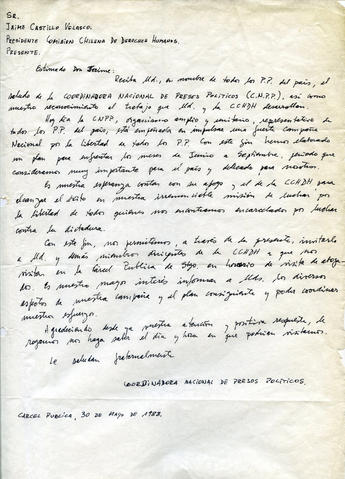 SR.
JAIME CASTILLO VELASCO.
PRESIDENTE COMISION CHILENA DE DERECHOS HUMANOS.
PRESENTE.
Estimado Don Jaime:
Reciba Ud., en nombre de todos los P.P. del país, el
saludo de la COORDINADORA NACIONAL DE PRESOS POLITICOS (C.N.P.P.), así como
nuestro reconocimiento al trabajo que Ud. y la CCHDH desarrollan.
Hoy día la CNPP, organismo amplio y unitario, representativo de
todos los P.P. del país, está empeñada en impulsar una fuerte campaña
Nacional por la libertad de todos los P.P. Con este fin hemos elaborado
un plan para enfrentar los meses de Junio a Septiembre, período que
consideramos muy importante para el país y para nosotros.
Es nuestra esperanza contar con su apoyo y el de la CCHDH para
alcanzar el éxito en nuestra irrenunciable misión de luchar por
la libertad de todos quienes nos encontramos encarcelados por luchar
contra la dictadura.
Con este fin, nos permitimos, a través de la presente, invitarlo
a Ud. y demás miembros dirigentes de la CCHDH a que nos
visiten en la Cárcel Pública de Stgo, en horario de visita de aboga-
dos. Es nuestro mayor interés informar a Uds. los diversos
aspectos de nuestra campaña y el plan consiguiente y poder coordinar
nuestro esfuerzo.
Agradeciendo desde ya vuestra atención y positiva respuesta, le
rogamos nos haga saber el día y hora en que podrían visitarnos.
Le saludan fraternalmente
COORDINADORA NACIONAL DE PRESOS POLITICOS.
CARCEL PUBLICA, 30 DE MAYO DE 1988.